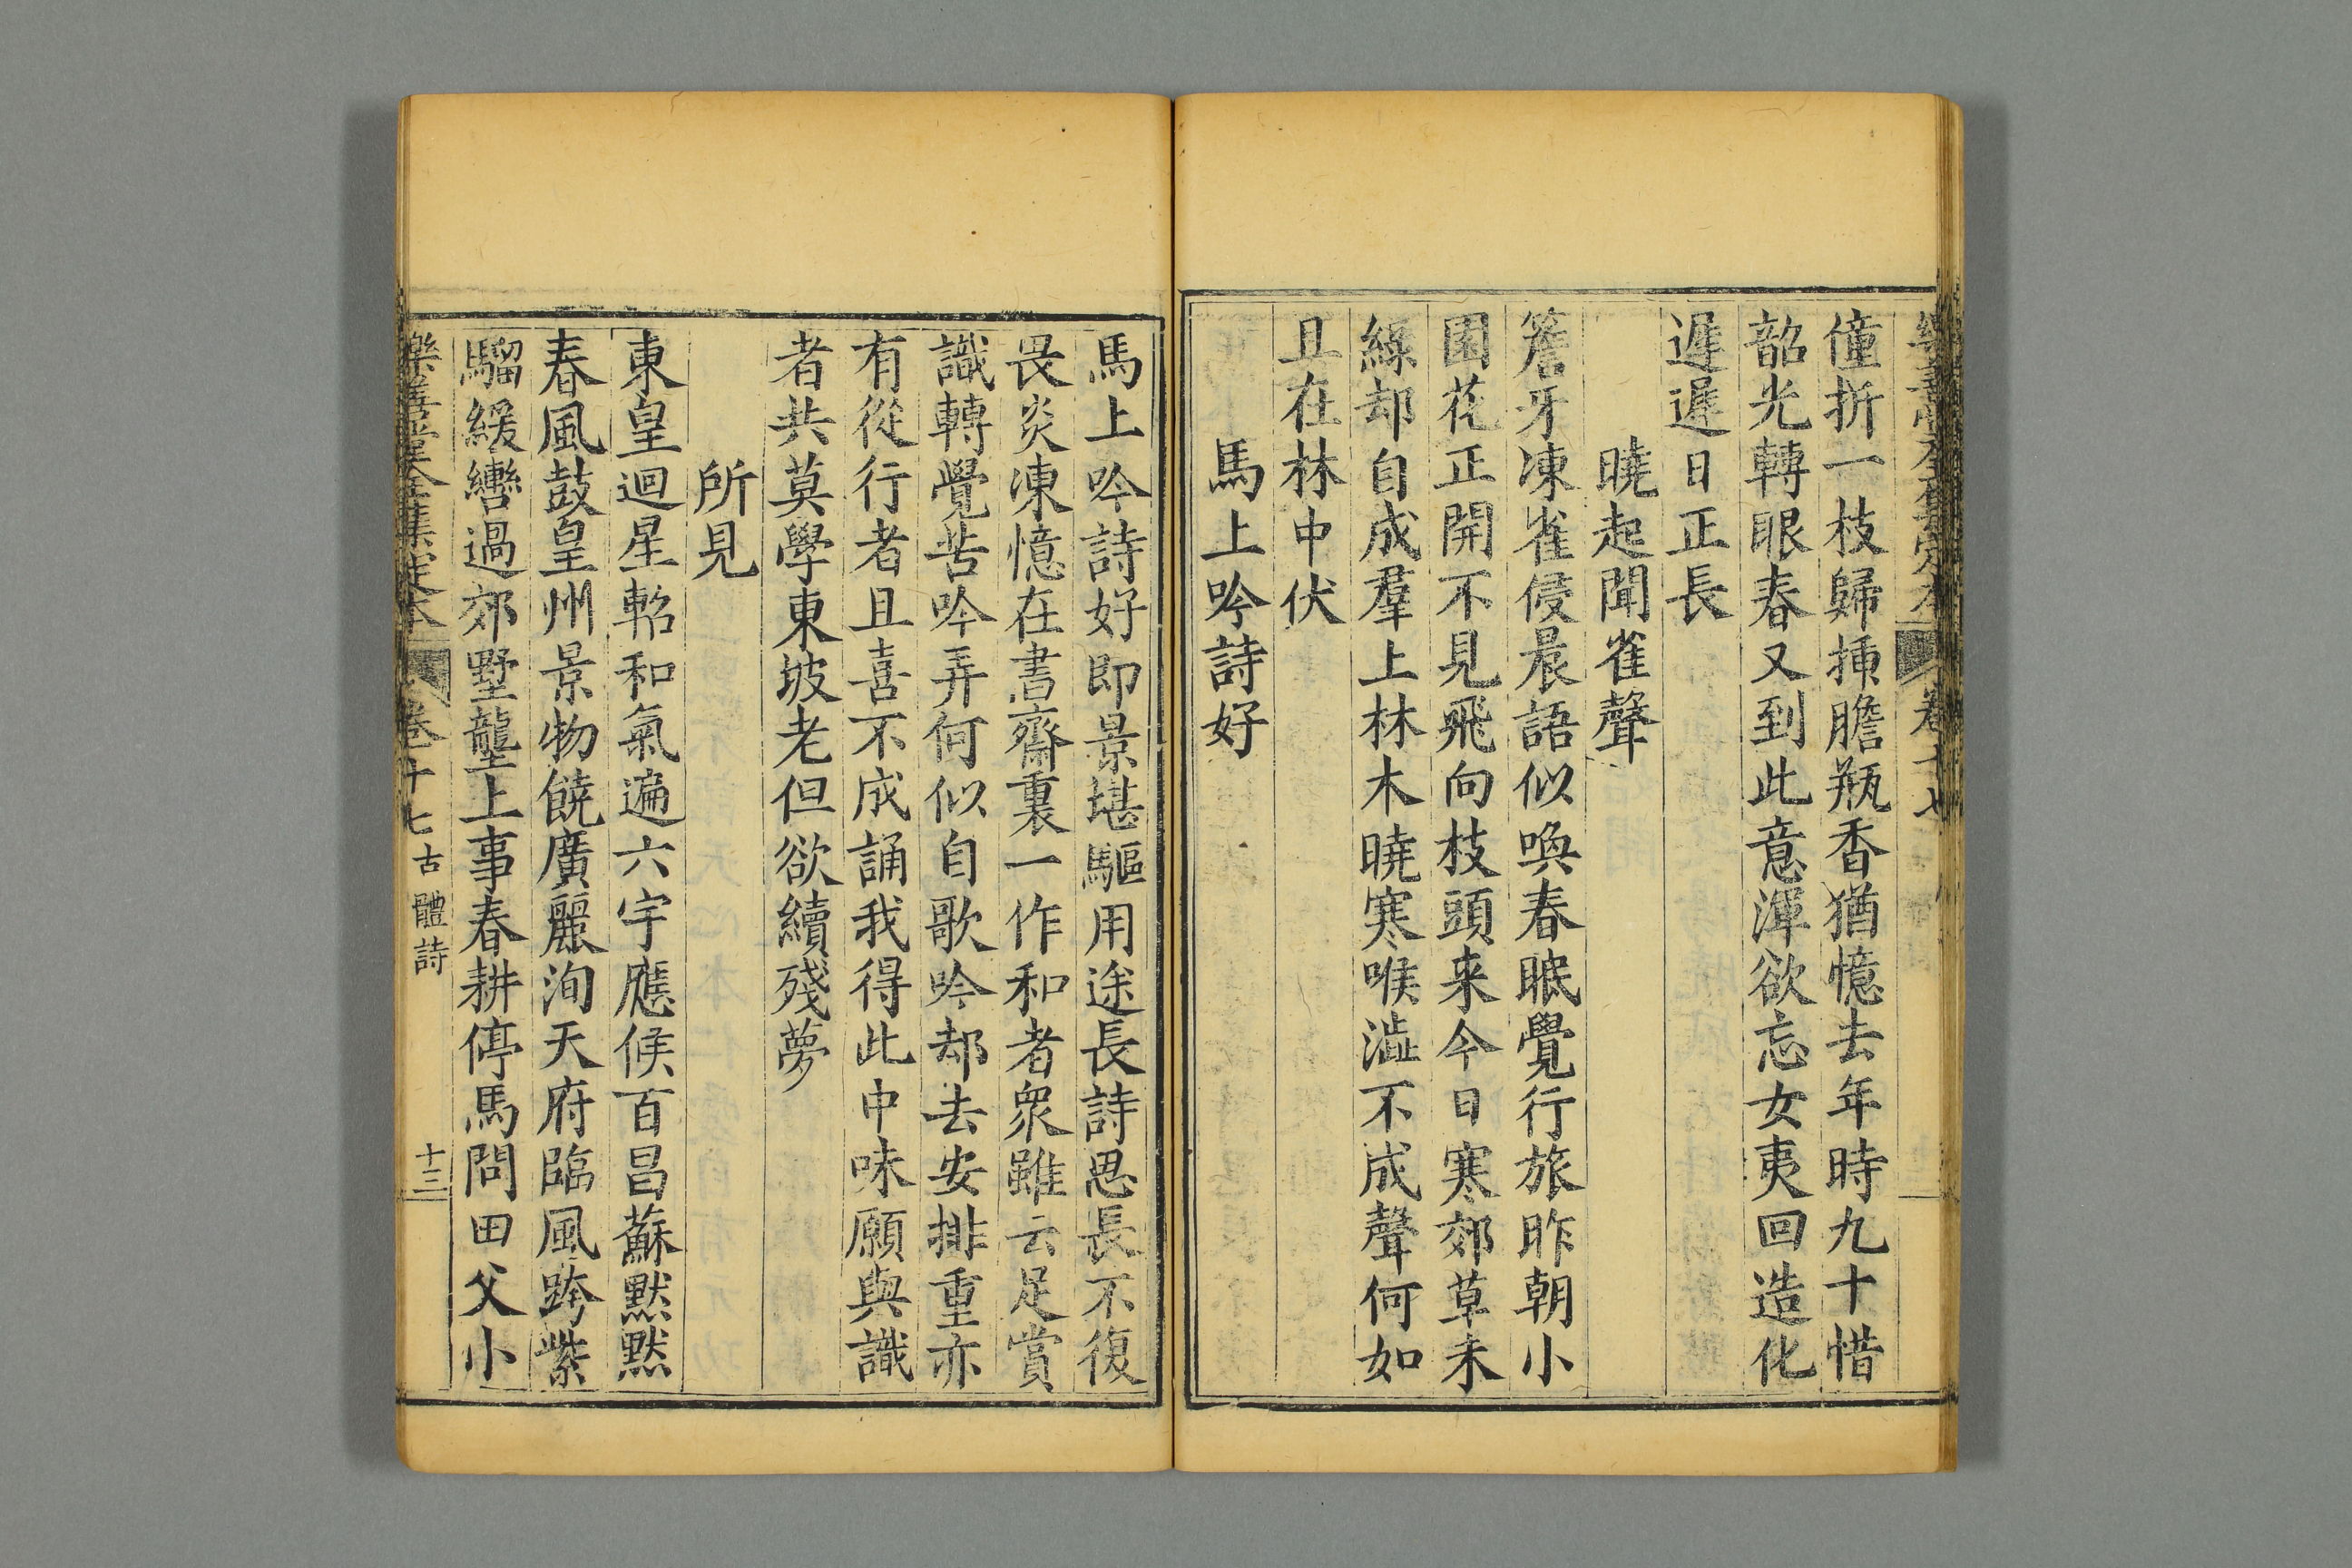 僮折一枝歸揷膽瓶香猶憶去年時九十惜
韶光轉眼春又到此意渾欲忘女夷回造化
遲遲日正長
曉起聞雀聲
簷牙凍雀侵晨語似喚春眠覺行旅昨朝小
園花正開不見飛向枝頭来今日寒郊草未
綠却自成羣上林木曉寒喉澁不成聲何如
且在林中伏
馬上吟詩好
馬上吟詩好即景堪驅用途長詩思長不復
畏炎凍憶在書齋裏一作和者衆雖云足賞
識轉覺苦吟弄何似自歌吟却去安排重亦
有從行者且喜不成誦我得此中味願與識
者共莫學東坡老但欲續殘夢
所見
東皇迴星軺和氣遍六宇應候百昌蘇黙黙
春風鼓皇州景物饒廣麗洵天府臨風跨紫
騮緩轡過郊墅壟上事春耕停馬問田父小
樂善堂全集定本 卷十七 古體詩 十三